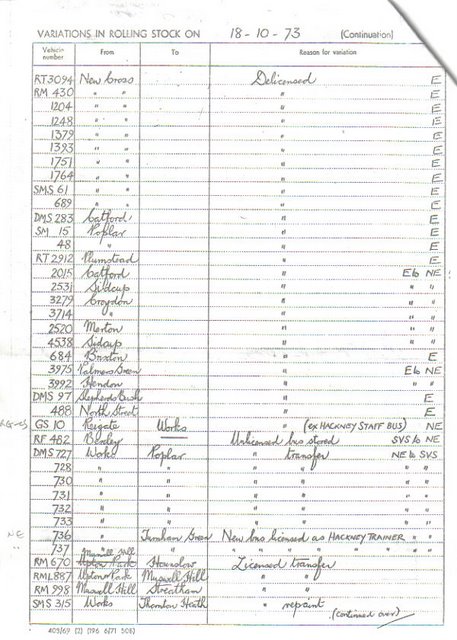 VARIATIONS IN ROLLING STOCK ON 18-10-73 (Continuation)
Vehicle number From To Reason for variation
RT3094 New Cross Delicensed E
RM 430 " " " E
1204 " " " E
1248 " " " E
1379 " " " E
1393 " " " E
1751 " " " E
1764 " " " E
SMS 61 " " " E
689 " " " E
DMS 283 Catford " E
SM 15 Poplar " E
48 " " E
RT 2912 Plumstead " E
2015 Catford " E to NE
2531 Sidcup " " "
3279 Croydon " " "
3714 " " " "
2520 Merton " " "
4538 Sidcup " " "
684 Brixton " E
3975 Palmers Green " E to NE
3992 Hendon " " "
DMS 97 Shepherds Bush " E
488 North Street " E
GS 10 Reigate Works " (ex HACKNEY STAFF BUS) NE
RF 482 Bexley Unlicensed bus stored SVS to NE
DMS 727 Works Poplar " transfer NE to SVS
728 " " " " " "
730 " " " " " "
731 " " " " " "
732 " " " " " "
733 " " " " " "
NE 736 " Turnham Green New bus licensed as HACKNEY TRAINER " "
" 737 " " " " " " " " " "
RM 670 Upton Park Hounslow Licensed transfer
RML 887 Upton Park Muswell Hill " "
RM 998 Muswell Hill Streatham " "
SMS 315 Works Thornton Heath " repaint
(continued over)
403/69 (2) (796 6/71 508)